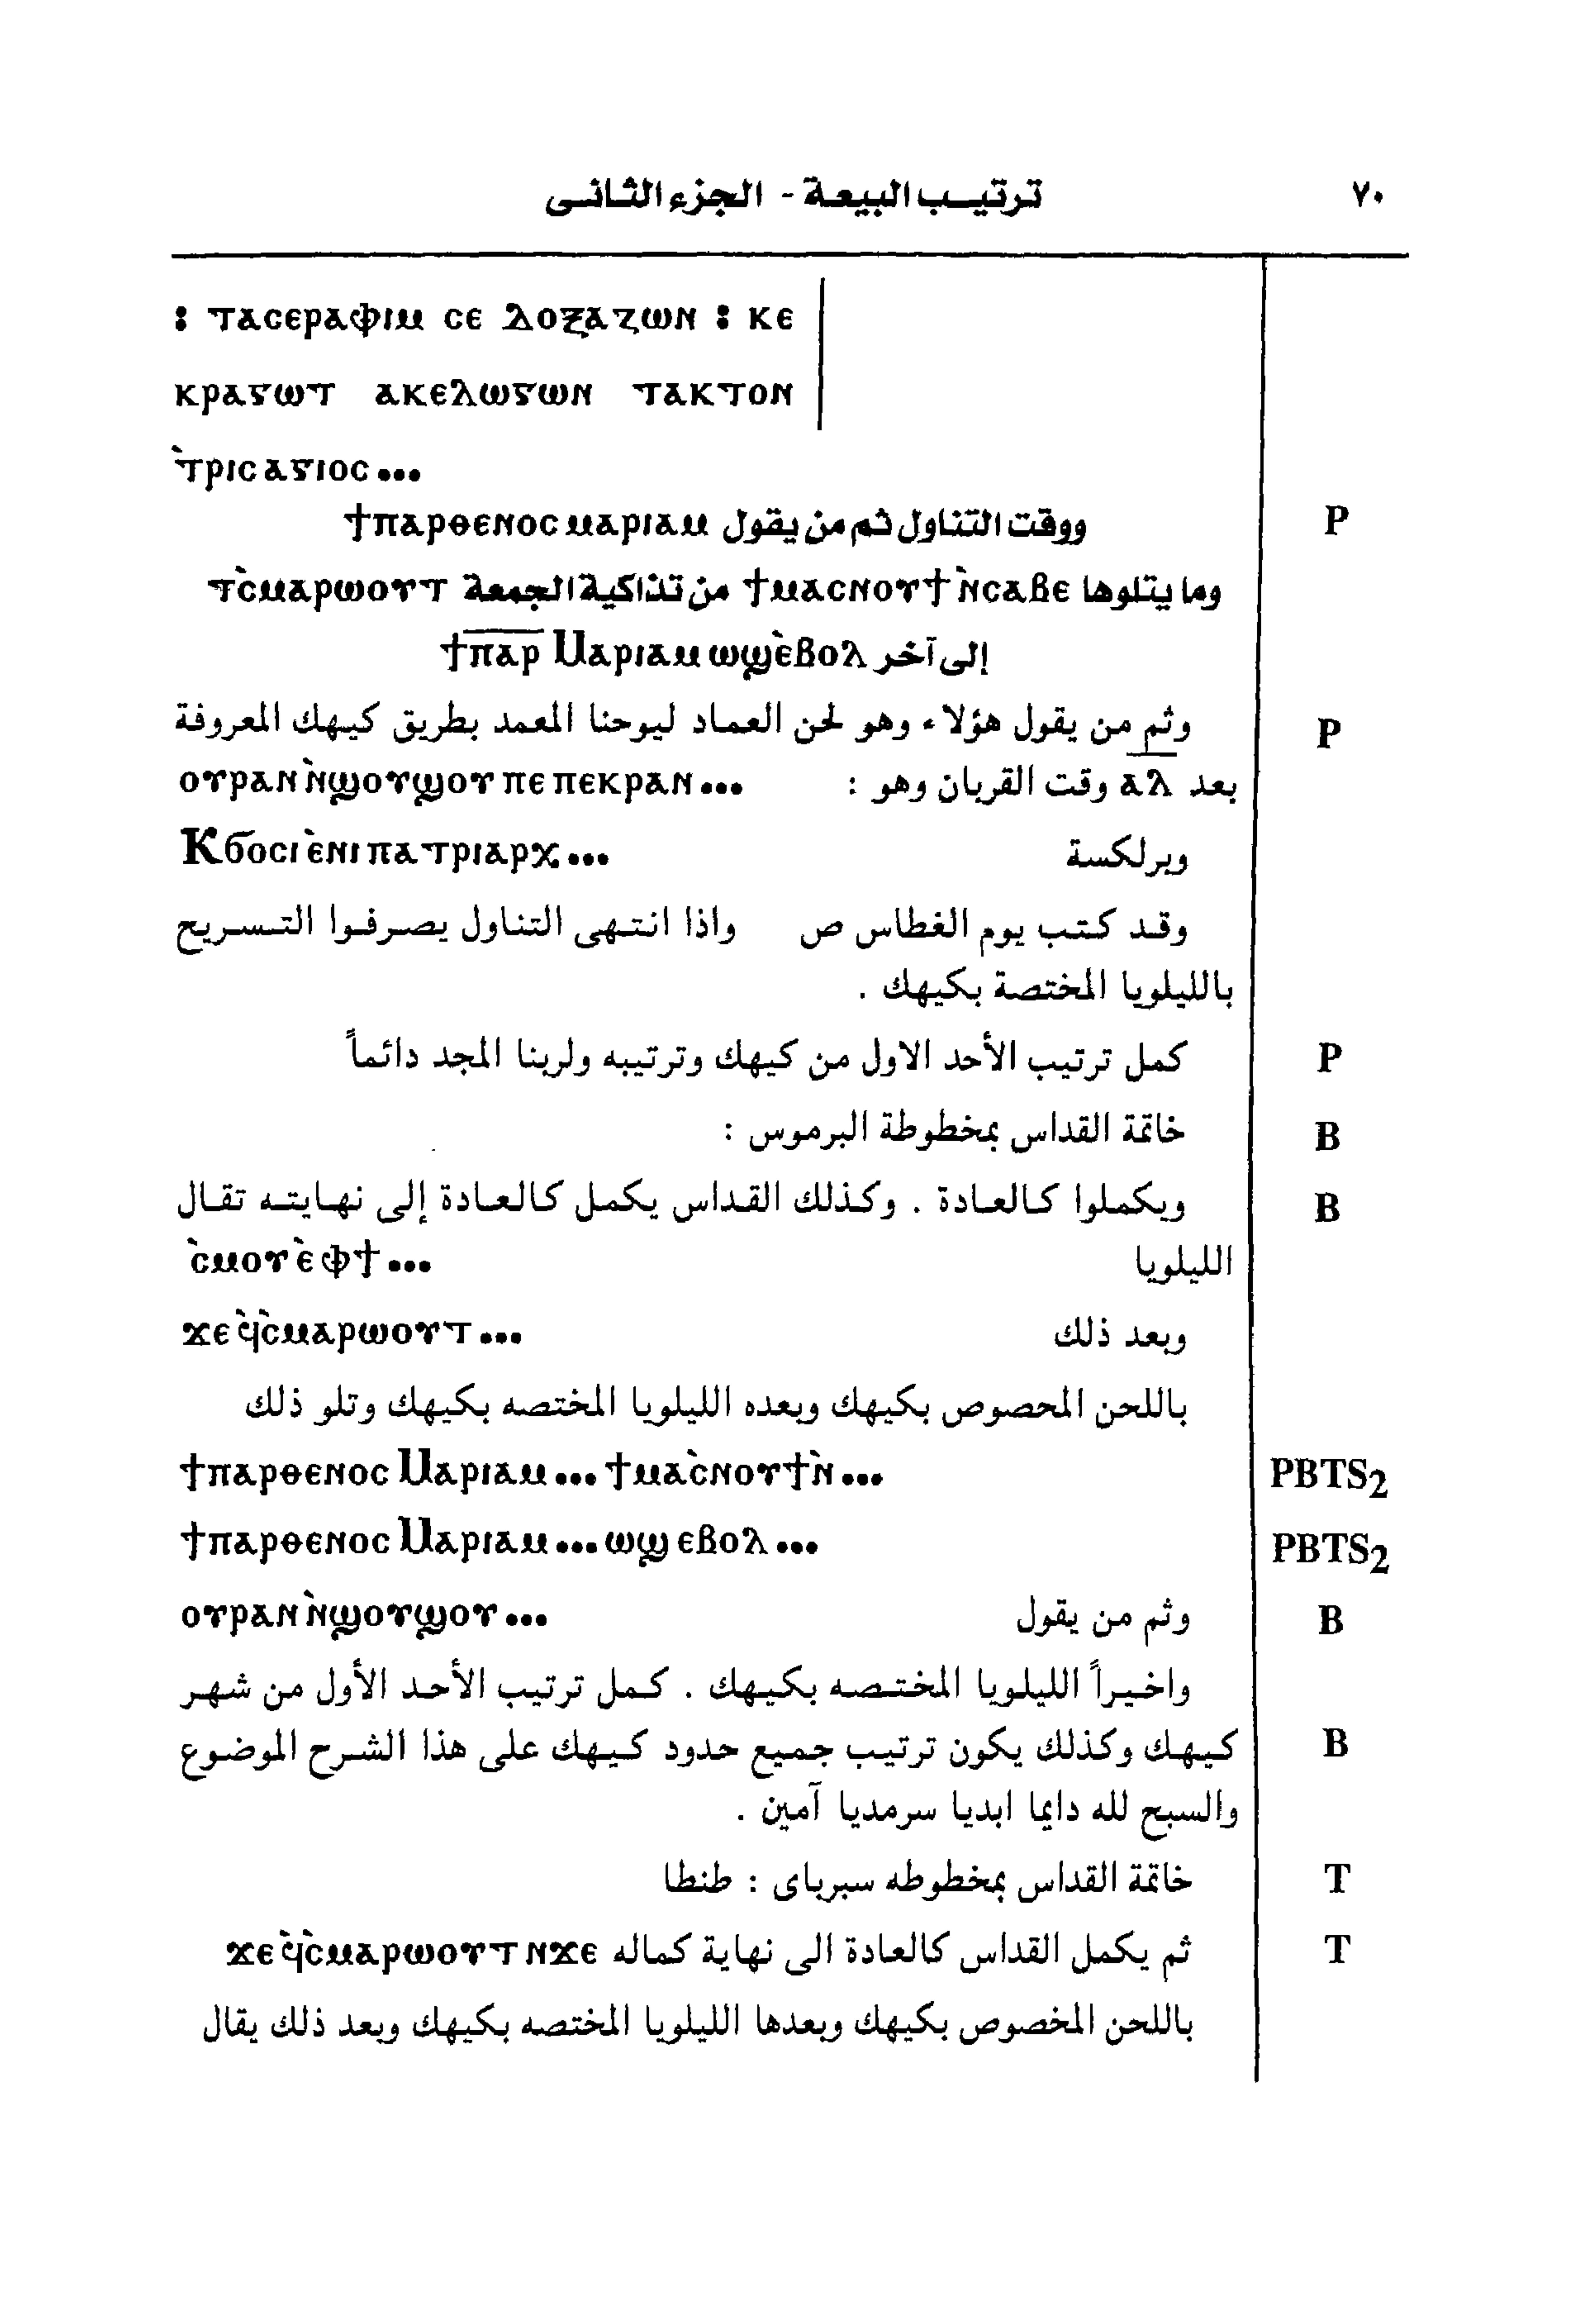 ٧٠ ترتيب البيعة - الجزء الثانى
: ⲧⲁⲥⲉⲣⲁⲫⲓⲙ ⲥⲉ ⲇⲟⲝⲁⲍⲱⲛ : ⲕⲉ
ⲕⲣⲁⲅⲱⲧ ⲁⲕⲉⲗⲱⲅⲱⲛ ⲧⲁⲕⲧⲟⲛ
ⲧ̀ⲣⲓⲥⲁⲅⲓⲟⲥ...
P ووقت التناول ثم من يقول ϯⲡⲁⲣⲑⲉⲛⲟⲥ ⲙⲁⲣⲓⲁⲙ
وما يتلوها ϯⲙⲁⲥⲛⲟⲩϯ ⲛ̀ⲥⲁⲃⲉ من تذاكية الجمعة ⲧⲥ̀ⲙⲁⲣⲱⲟⲩⲧ
إلى آخر ϯⲡⲁⲣ Ⲙⲁⲣⲓⲁⲙ ⲱϣ ⲉ̀ⲃⲟⲗ
P وثم من يقول هؤلاء وهو لحن العماد ليوحنا المعمد بطريق كيهك المعروفة
بعد ⲁⲗ وقت القربان وهو : ⲟⲩⲣⲁⲛ ⲛ̀ϣⲟⲩϣⲟⲩ ⲡⲉ ⲡⲉⲕⲣⲁⲛ...
وبرلكسة Ⲕϭⲟⲥⲓ ⲉ̀ⲛⲓⲡⲁⲧⲣⲓⲁⲣⲭ...
وقد كتب يوم الغطاس ص واذا انتهى التناول يصرفوا التسريح
بالليلويا المختصة بكيهك .
P كمل ترتيب الأحد الاول من كيهك وترتيبه ولربنا المجد دائماً
B خاتمة القداس بمخطوطة البرموس :
B ويكملوا كالعادة . وكذلك القداس يكمل كالعادة إلى نهايته تقال
الليلويا ⲥ̀ⲙⲟⲩ ⲉ̀ⲫϯ...
وبعد ذلك ϫⲉ ϥ̀ⲥ̀ⲙⲁⲣⲱⲟⲩⲧ...
باللحن المحصوص بكيهك وبعده الليلويا المختصه بكيهك وتلو ذلك
PBTS2 ϯⲡⲁⲣⲑⲉⲛⲟⲥ Ⲙⲁⲣⲓⲁⲙ... ϯⲙⲁⲥ̀ⲛⲟⲩϯ ⲛ̀...
PBTS2 ϯⲡⲁⲣⲑⲉⲛⲟⲥ Ⲙⲁⲣⲓⲁⲙ... ⲱϣ ⲉⲃⲟⲗ...
B وثم من يقول ⲟⲩⲣⲁⲛ ⲛ̀ϣⲟⲩϣⲟⲩ...
واخيراً الليلويا المختصه بكيهك . كمل ترتيب الأحد الأول من شهر
B كيهك وكذلك يكون ترتيب جميع حدود كيهك على هذا الشرح الموضوع
والسبح لله دايما ابديا سرمديا آمين .
T خاتمة القداس بمخطوطه سبرباى : طنطا
T ثم يكمل القداس كالعادة الى نهاية كماله ϫⲉ ϥ̀ⲥ̀ⲙⲁⲣⲱⲟⲩⲧ ⲛϫⲉ
باللحن المخصوص بكيهك وبعدها الليلويا المختصه بكيهك وبعد ذلك يقال